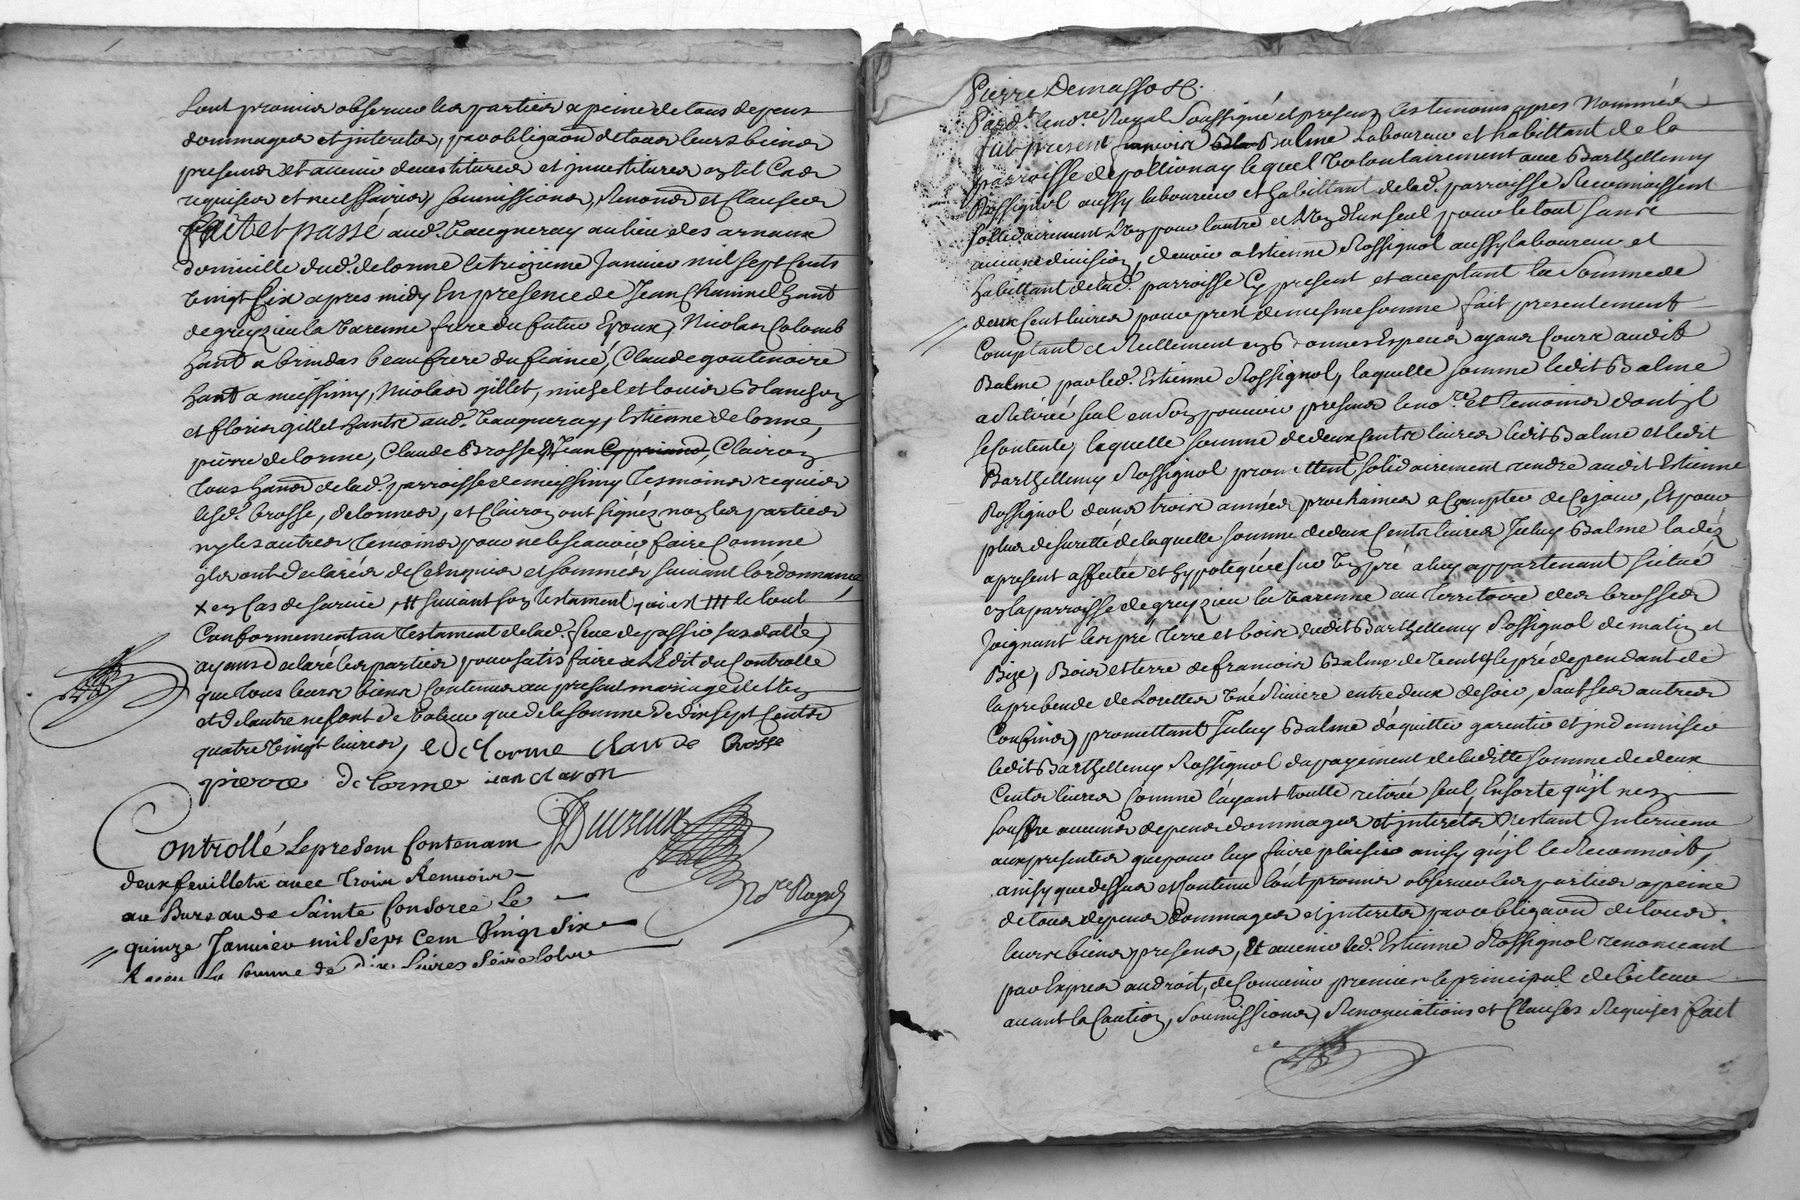 sont promis observer les parties a peine de tous depens
dommages et interets, par obligaon de tous leurs biens
presens et avenir devestitures et investitures estet Cas
requises et necessaires, soumissions, Renonc et Clauses
fait et passé aud. Vaugneray au lieu des arnaux
domicille dud. delorme le treizieme Janvier mil sept Cents
vingt Six apres midy En presence de Jean Chamuel hant
de greyzieu la Varenne frere du futur Epoux, Nicolas Colomb
hant a brindas beau frere du fiancé, Claude goutenoire
hant a meissimy, Nicolas gillet, michel et louis Blanchon
et floris gillet hants aud. Vaugneray, Estienne delorme,
pierre delorme, Claude Brosse, Jean Clairon
tous hans de lad. parroisse de meissimy tesmoins requis
lesd. brosse, delormes, et Clairon ont signés non les parties
ny les autres temoins pour ne le scavoir faire Comme
ils ont declarés de Ce Enquis et sommés suivant l'ordonnance
x en Cas de survie, ## suivant son testament qui est ### le tout
Conformement au testament de lad. feue depassio susdatté,
ayans declaré les parties pour satisfaire a L'Edit du Controlle
que tous leurs biens Contenus au present mariage de l'un
et de l'autre ne sont de valeur que de la somme de dix sept Cents
quatre vingt livres, e Delorme Claude Brosse
pierre Delorme jean clairon
Controllé Le present Contenant
deux feuillets avec trois Renvois
au Bureau de Sainte Consorce Le
quinze Janvier mil sept cent vingt six
Receu La somme de dix Livres seize sols
Nore Royal
Pierre Demasso &.
Pardt. le nore. Royal Soussigné et presens les temoins apres Nommés
fut present françois Balme Laboureur et habittant de la
parroisse de pollionay lequel volontairement avec Barthellemy
Rossignol aussy laboureur et habittant de lad. parroisse Reconnoissent
Sollidairement L'un pour l'autre et L'un d'Eux seul pour le tout sans
aucune division, devoir a Estienne Rossignol aussy laboureur et
habittant de lad. parroisse Cy present et acceptant la Somme de
deux Cent livres pour prest de mesme somme fait presentement
Comptant et Reellement en bonnes Especes ayans Cours audit
Balme par led. Estienne Rossignol, laquelle somme ledit Balme
a Retirée seul en son pouvoir presens le nore. et temoins dont il
se Contente, laquelle somme de deux Cents livres ledit Balme et ledit
Barthellemy Rossignol promettent solidairement rendre audit Estienne
Rossignol dans trois années prochaines a Compter de Ce jour, Et pour
plus de suretté de laquelle somme de deux Cents livres Iceluy Balme la des
a present affectée et hypotequée sur Un pré a luy appartenant situé
en la parroisse de greyzieu la Varenne au territoire des brosses
Joignant les pré terre et bois dudit Barthellemy Rossignol de matin et
Bize, Bois et terre de francois Balme de Vent, le pré dependant de
la prebende de Lorette Une Riviere entre deux de soir, Sauf ses autres
Confins, promettant Iceluy Balme d'aquitter garentir et jndemniser
ledit Barthellemy Rossignol du payement de laditte somme de deux
Cents livres Comme l'ayant toutte retirée seul, Ensorte qu'jl n'en
souffre aucuns depens dommages et jnterets N'estant Intervenu
aux presentes que pour luy faire plaisir ainsy qu'jl le Reconnoit,
ainsy que dessus est Contenu l'ont promis observer les parties a peine
de tous depens dommages et jnterets par obligaon de tous
leurs biens presens, Et avenir led. Estienne Rossignol renonceant
par Expres au droit, de Convenir premier le principal debiteur
avant la Caution, Soumissions, Renonciations et Clauses Requises fait